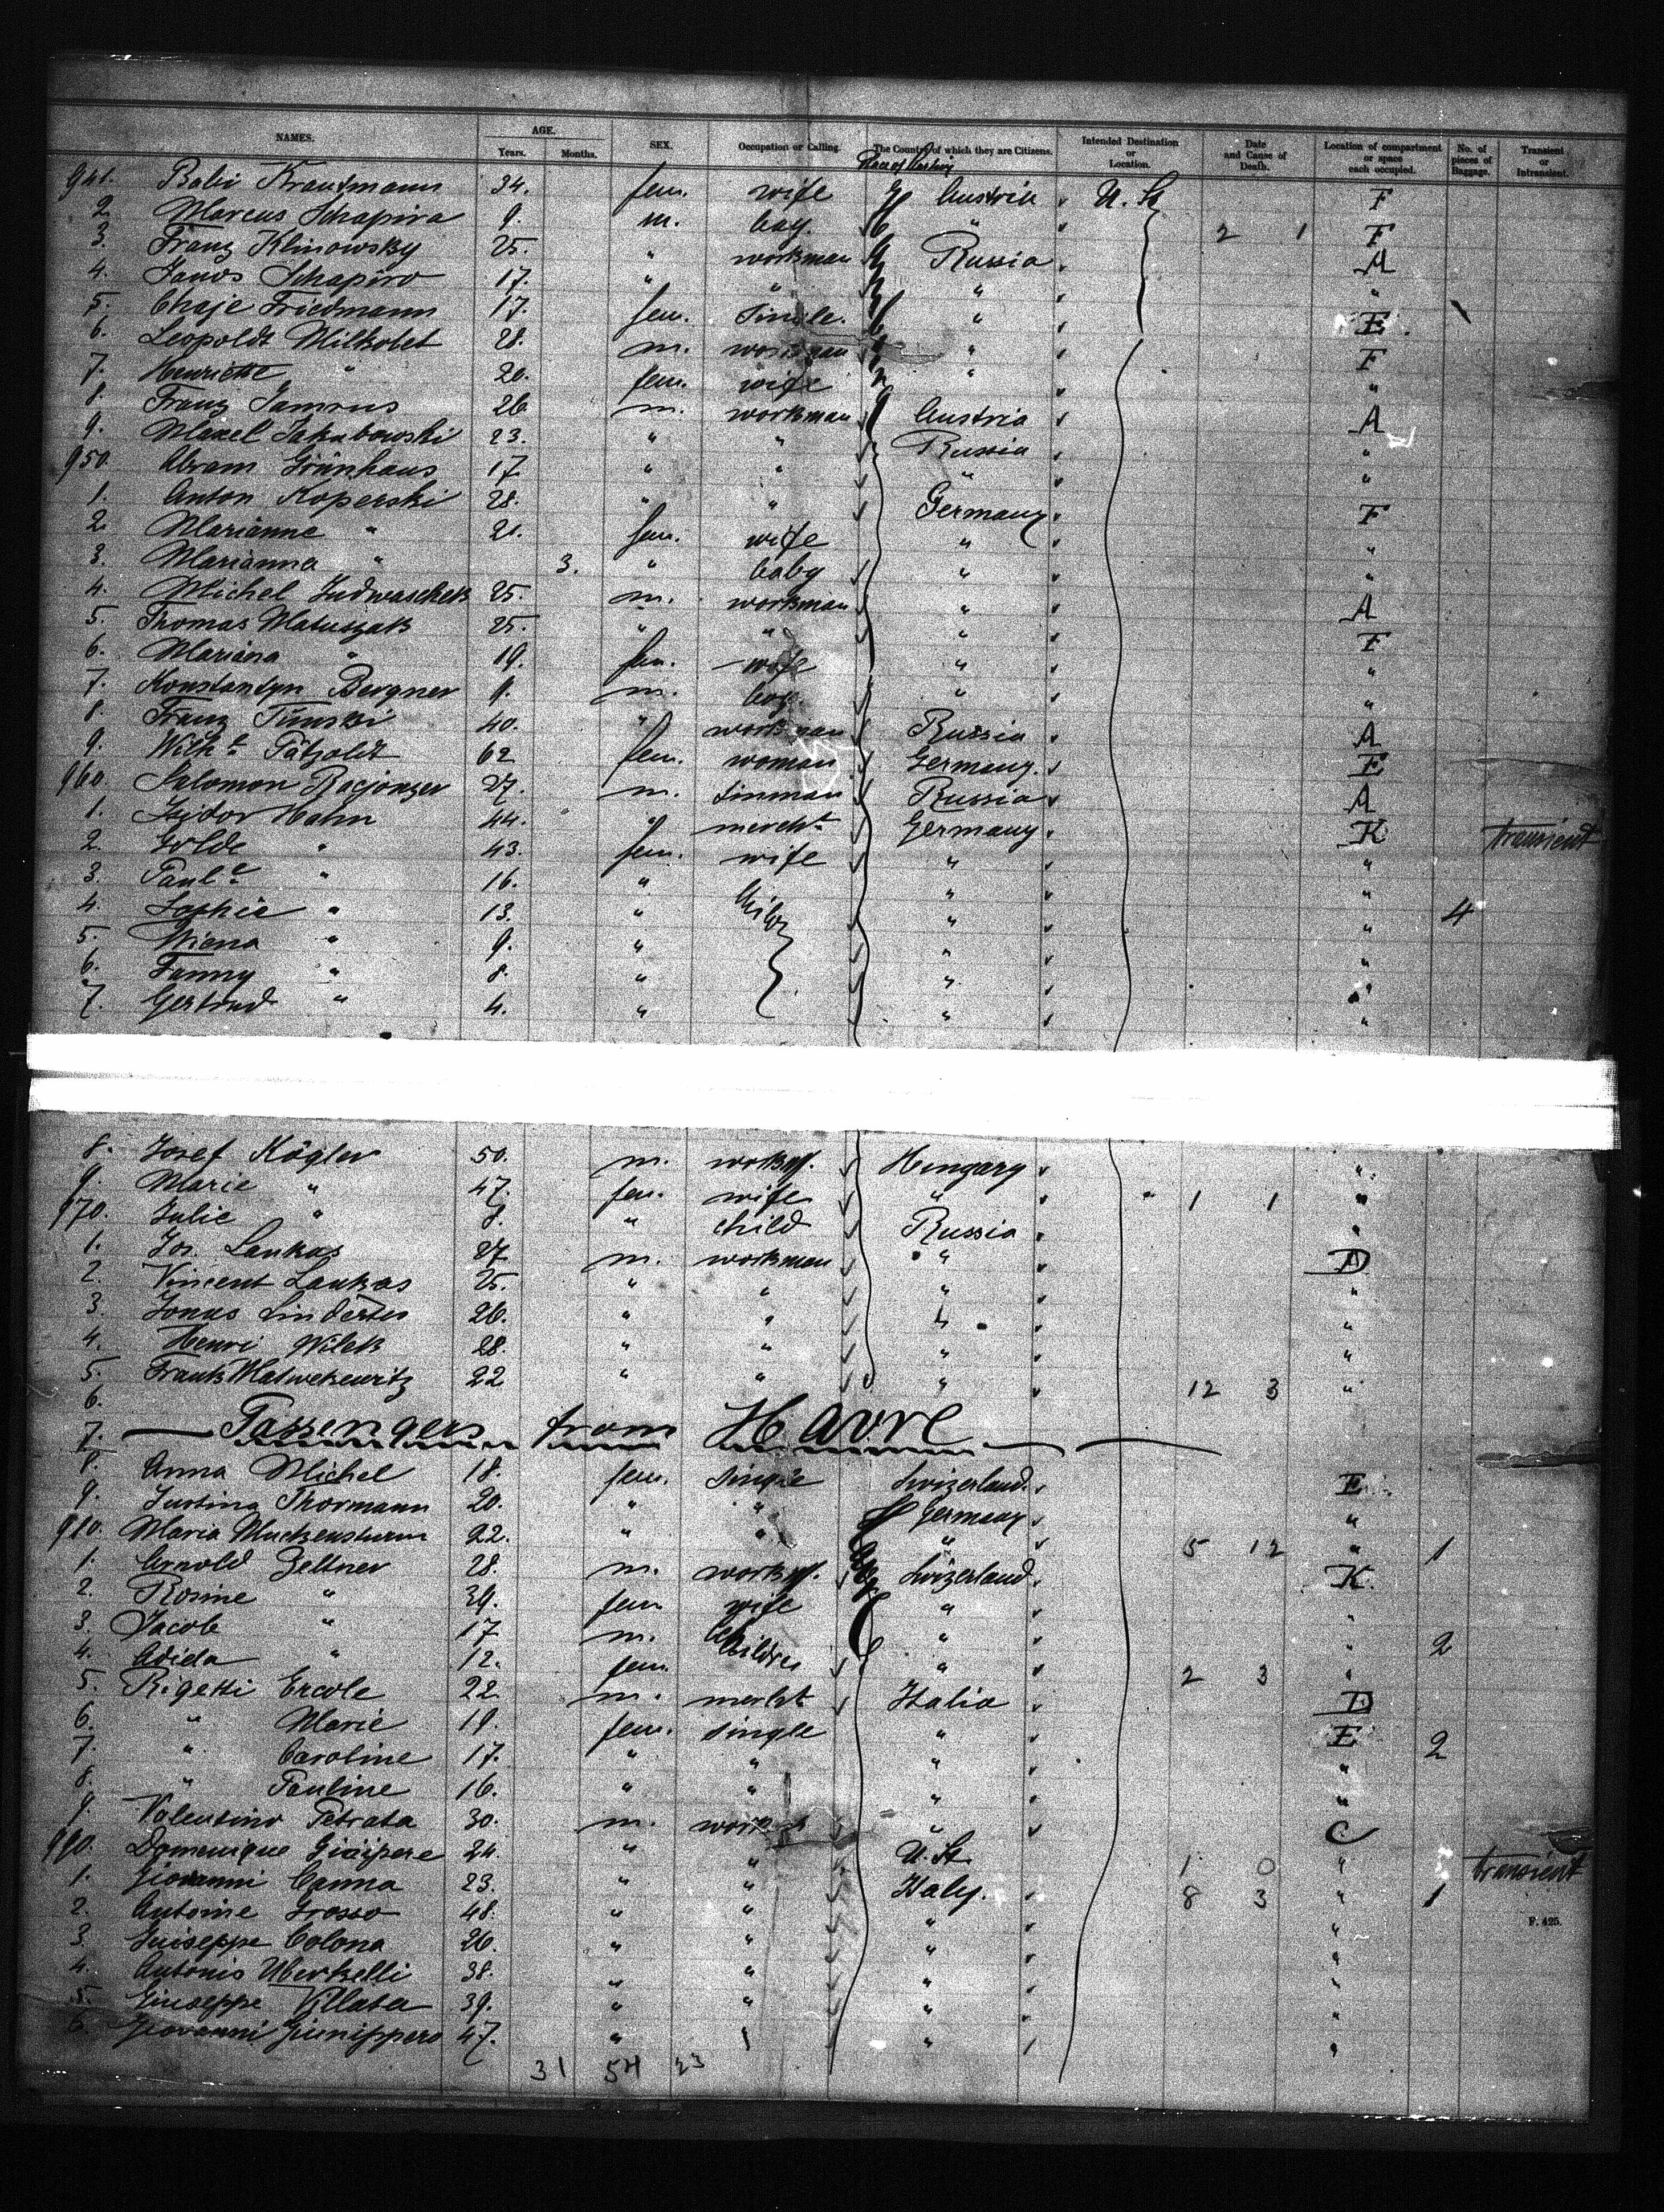 NAMES. AGE. Years. Months. SEX. Occupation or Calling. The Country of which they are Citizens. Intended Destination or Location. Date and Cause of Death. Location of compartment or space each occupied. No. of pieces of Baggage. Transient or Intransient.
941. Babi Krautmann 34. fem. wife Austria U. St F
2. Marcus Schapira 9. m. boy. " 2 1 F
3. Franz Klinowsky 25. " workman Russia A
4. Schapiro 17. " " " "
5. Chaje Friedmann 17. fem. Single. " E.
6. Leopoldt Milkolet 28. m. workman " F
7. Henriette " 20. fem. wife " "
8. Franz 26 m. workman Austria A
9. Jakubowski 23. " " Russia "
950. Abram Grünhaus 17 " " " "
1. Anton Koperski 28. " " Germany F
2. Marianne " 21. fem. wife " "
3. Marianna " 3. " baby " "
4. Michel 25. m. workman " A
5. Thomas Matuszak 25. " " " F
6. Mariana " 19. fem. wife " "
7. Konstantyn Bergner m. boy. " "
8. Franz 40. " workman Russia A
9. Wilhe Pätzoldt 62 fem. woman Germany. E
960. Salomon 27. m. tinman Russia A
1. Isidor Hahn 44. " mercht Germany K transient
2. Golde " 43. fem. wife " "
3. Paule " 16. " "
4. Sophie " 13. " " " 4
5. Wiena " 9. " " "
6. Fanny " 8. " " "
7. Gertrud " 4. " " "
8. Josef Kögler 50. m. Hungary "
9. Marie " 47. fem. wife " 1 1 "
970. Julie " 8. " child Russia "
1. Jos. Laukas 27 m. workman " D
2. Vincent Laukas 25. " " " "
3. Jonas 26. " " " "
4. Henri Wilek 28. " " " "
5. Frank 22 " " " 12 3 "
6.
7. Passengers from Havre
8. Anna Michel 18. fem. single Swizerland. E.
9. Justina Thormann 20. " " Germany "
980. Maria Muckensturm 22. " " " 5 12 " 1
1. Arnold Zeltner 28. m. Swizerland. K.
2. Rosine " 39. fem wife " "
3. Jacob " 17 m. " " 2
4. " 12. fem. children " 2 3 "
5. Rigetti Ercole 22 m. mercht Italia D
6. " Marie 19. fem. single " E 2
7. " Caroline 17. " " " "
8. " Pauline 16. " " " "
9. Valentino Petrata 30. m. " C
990. Domenique 24 " " U. St. 1 0 " transient
1. Giovanni Canna 23. " " Italy. 8 3 " 1
2. Antoine Grosso 48. " " " "
3. Guiseppe Colona 26. " " " "
4. Antonio 38. " " " "
5. Giuseppe Villata 39. " " " "
6. Giovanni 47. " " "
F. 425.
31 54 23